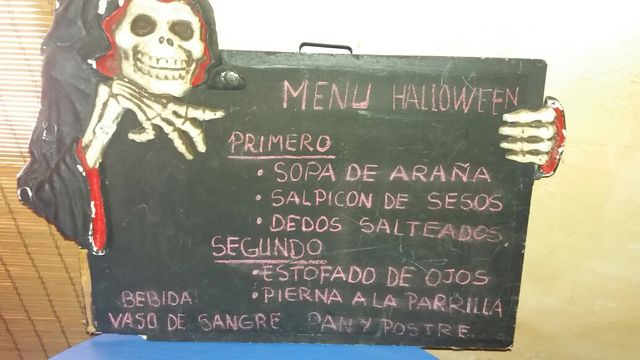 MENU HALLOWEEN
PRIMERO
• SOPA DE ARAÑA
• SALPICON DE SESOS
• DEDOS SALTEADOS
SEGUNDO
• ESTOFADO DE OJOS
• PIERNA A LA PARRILLA
BEBIDA:
VASO DE SANGRE PAN Y POSTRE